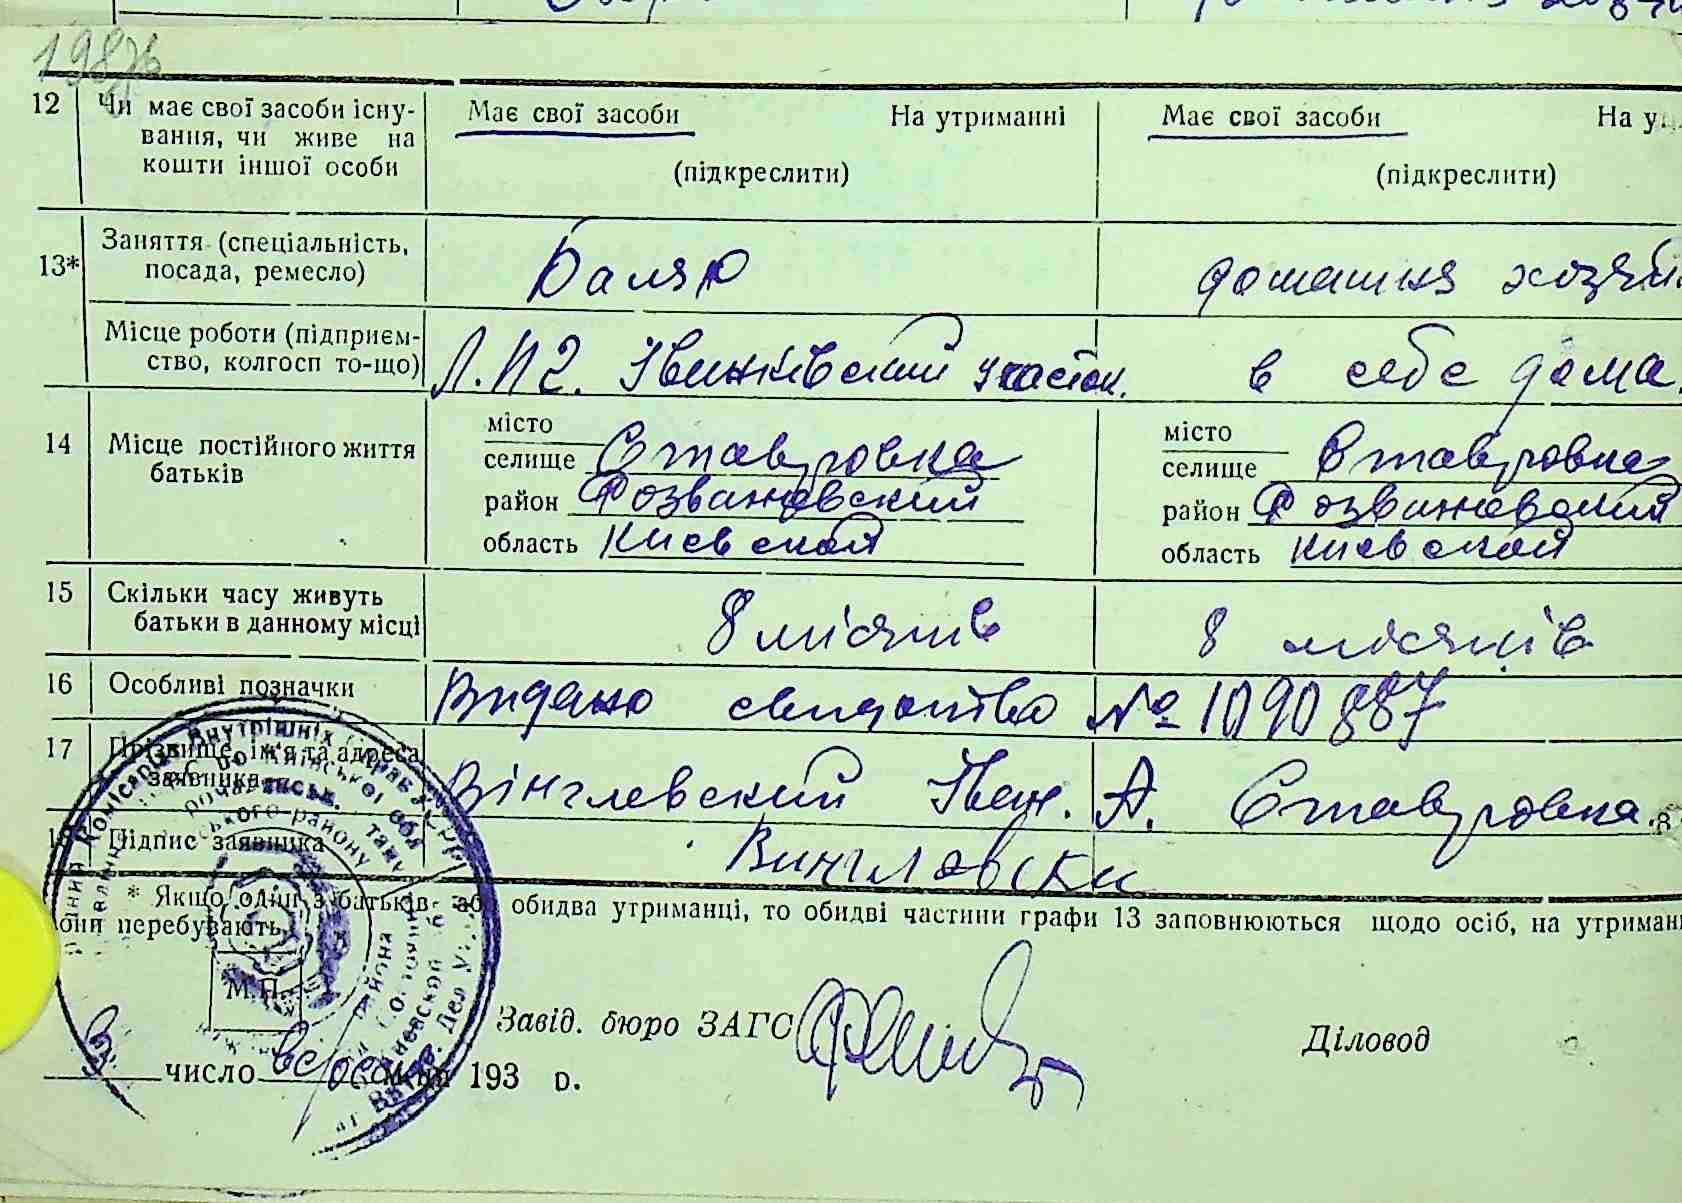 12 Чи має свої засоби існу- Має свої засоби На утриманні Має свої засоби На у
вання, чи живе на
кошти іншої особи (підкреслити) (підкреслити)
13* Заняття (спеціальність,
посада, ремесло) Баляр домашня
Місце роботи (підприєм-
ство, колгосп то-що) участок. в себе дома.
14 Місце постійного життя
батьків
місто місто
селище Ставровка селище Ставровка
район Розважевский район Розважевский
область Киевской область Киевской
15 Скільки часу живуть
батьки в данному місці 8 місяців 8 місяців
16 Особливі позначки Видано свидоцтво № 1090887
17 Прізвище, ім'я та адреса
заявника Вінглевский Іван. А. Ставровка.
18 Підпис заявника Винглевски
* Якщо один з батьків або обидва утриманці, то обидві частини графи 13 заповнюються щодо осіб, на утриман
вони перебувають.
М.П.
Завід. бюро ЗАГС Діловод
3 число 193 р.